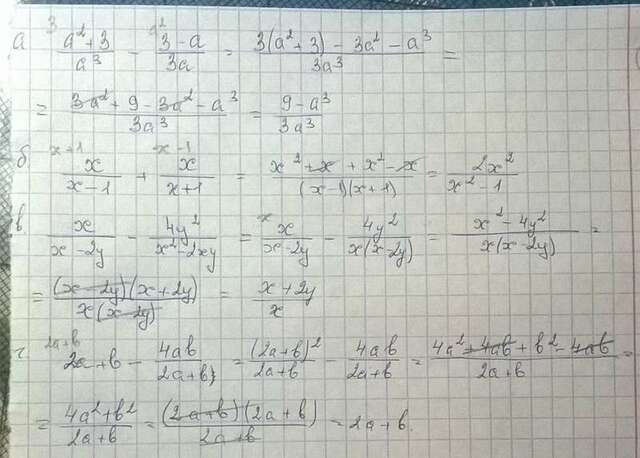 а ³ (a²+3)/a³ - ᵃ² (3-a)/3a = (3(a²+3) - 3a² - a³)/3a³ =
= (3a² + 9 - 3a² - a³)/3a³ = (9 - a³)/3a³
б ˣ⁺¹ x/(x-1) + ˣ⁻¹ x/(x+1) = (x² + x + x² - x)/((x-1)(x+1)) = 2x²/(x² - 1)
в x/(x-2y) - 4y²/(x²-2xy) = ˣ x/(x-2y) - 4y²/(x(x-2y)) = (x² - 4y²)/(x(x-2y)) =
= ((x-2y)(x+2y))/(x(x-2y)) = (x+2y)/x
г ²ᵃ⁺ᵇ 2a+b - 4ab/(2a+b) = (2a+b)²/(2a+b) - 4ab/(2a+b) = (4a² + 4ab + b² - 4ab)/(2a+b) =
= (4a²+b²)/(2a+b) = ((2a+b)(2a+b))/(2a+b) = 2a+b.